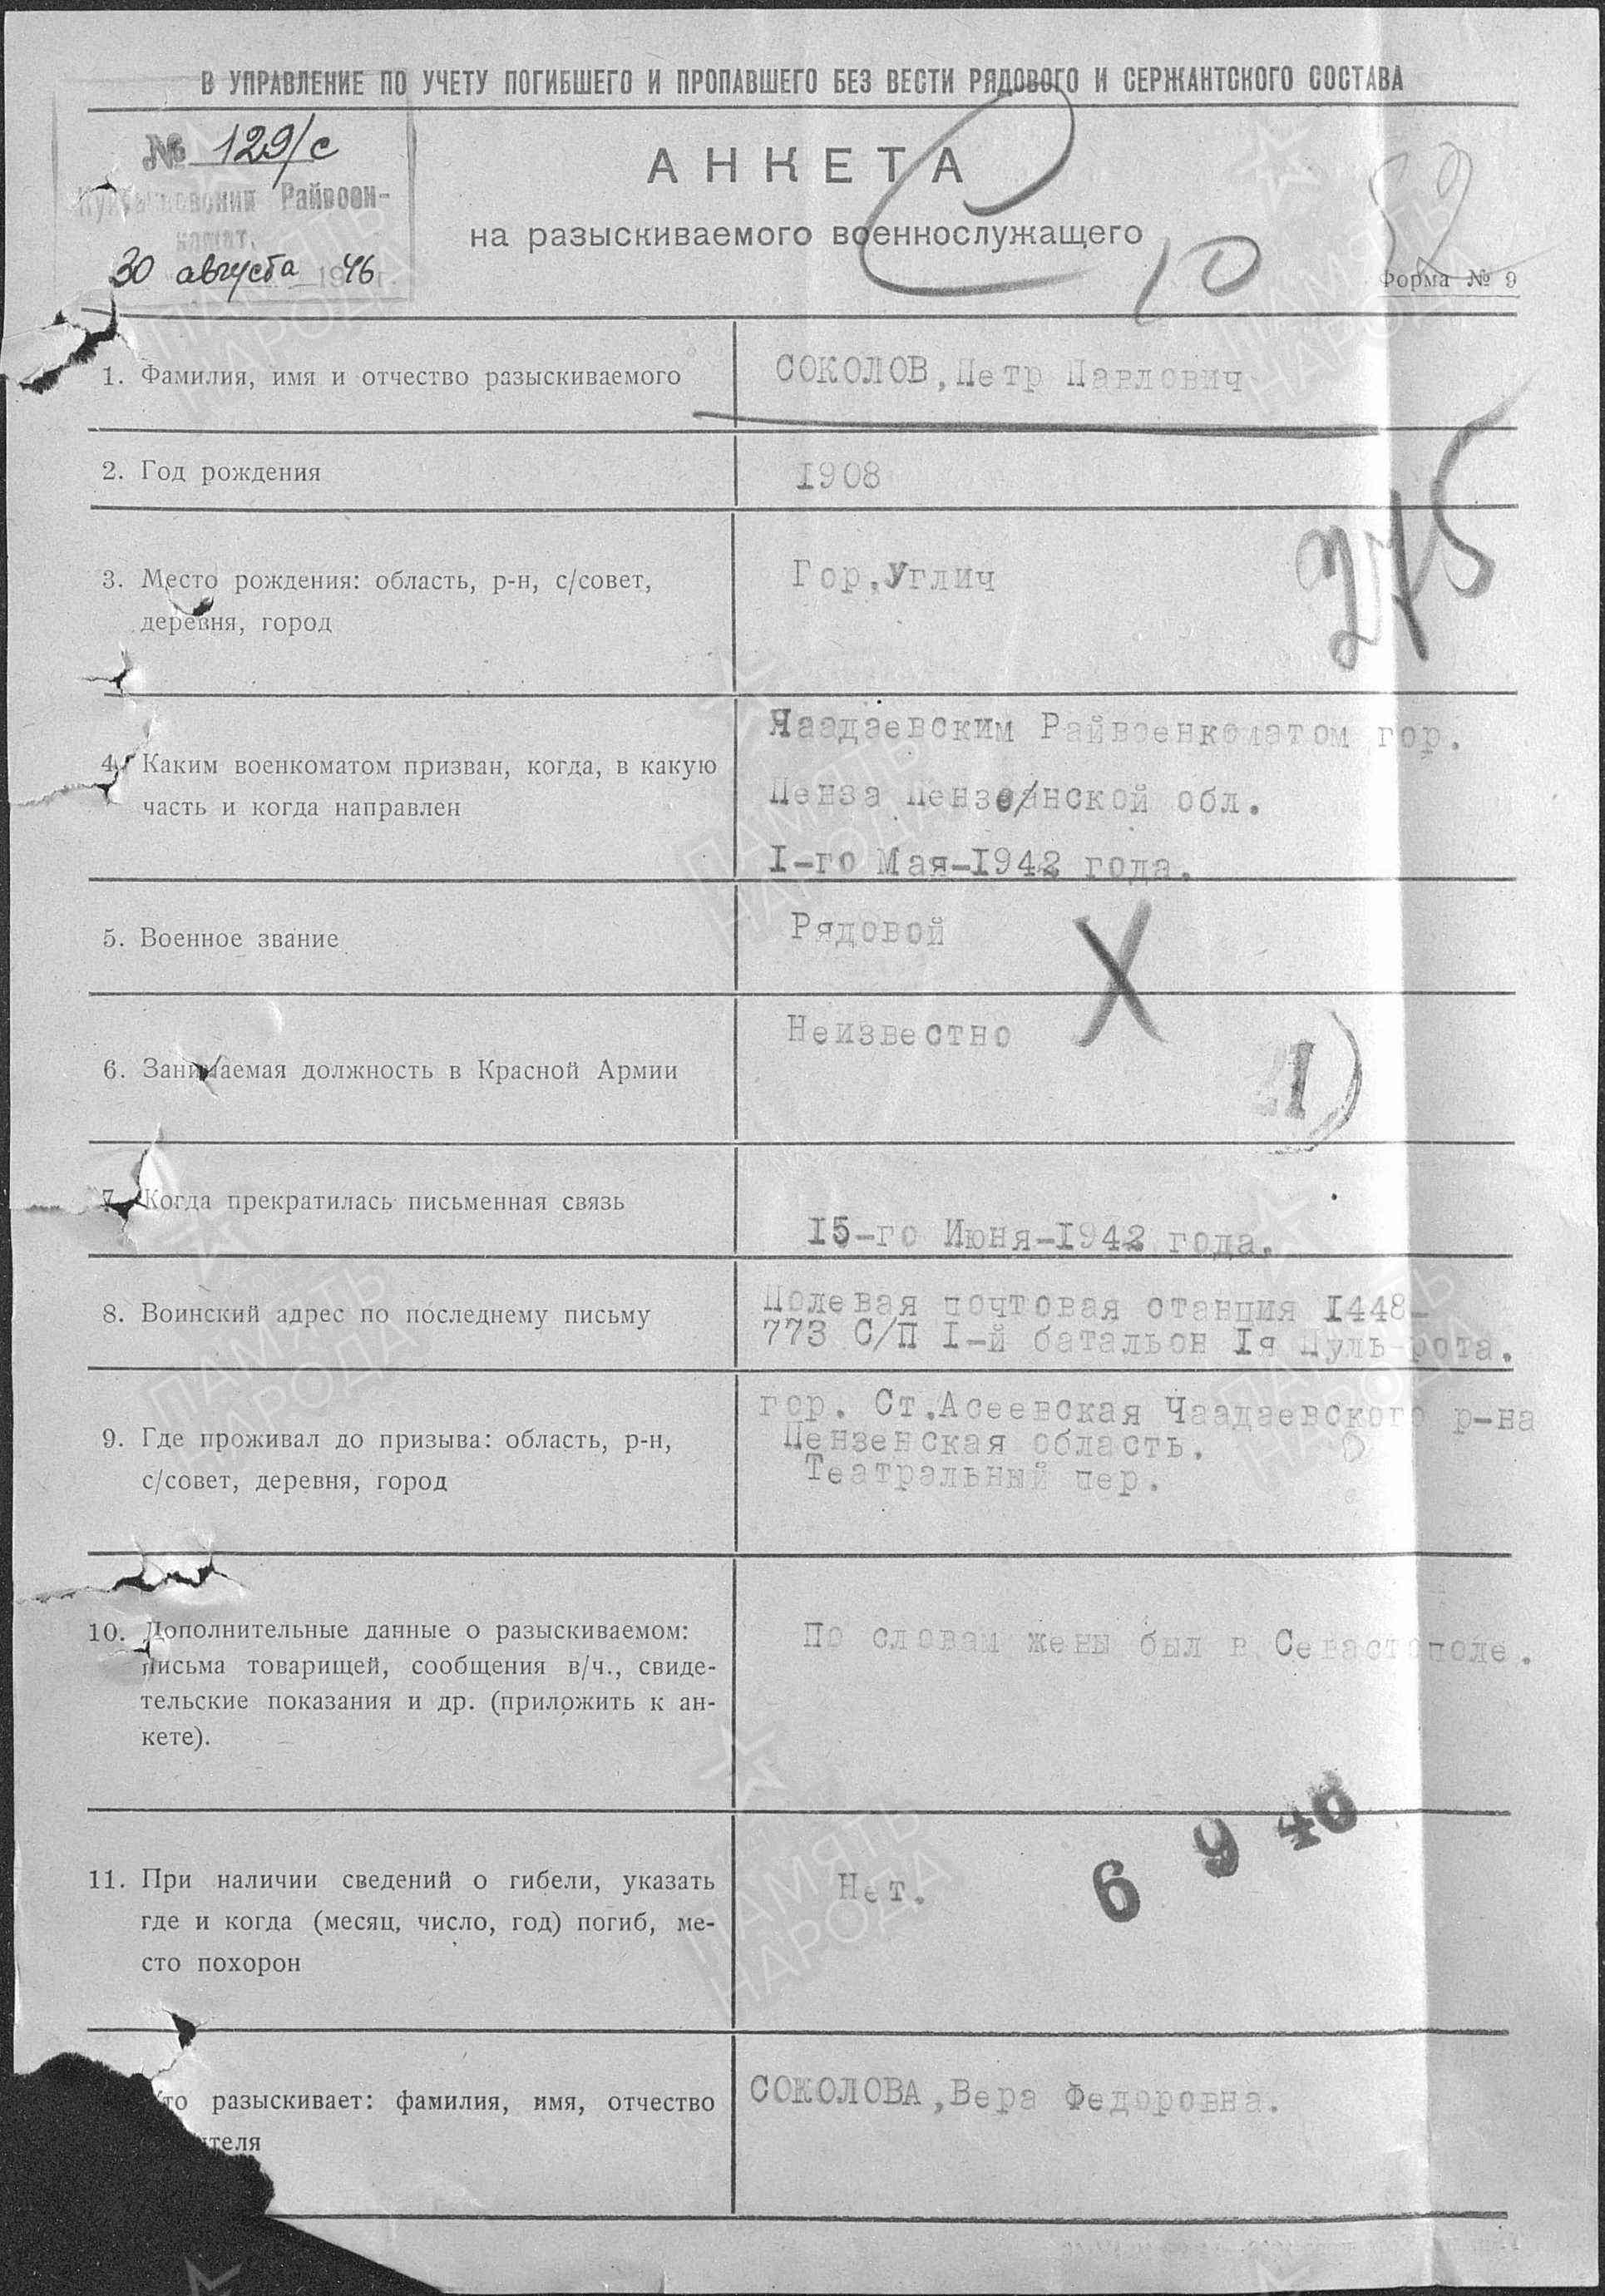 В УПРАВЛЕНИЕ ПО УЧЕТУ ПОГИБШЕГО И ПРОПАВШЕГО БЕЗ ВЕСТИ РЯДОВОГО И СЕРЖАНТСКОГО СОСТАВА
№ 129/с
Райвоен-
комат.
30 августа 1946 г.
АНКЕТА
на разыскиваемого военнослужащего
10
Форма № 9
1. Фамилия, имя и отчество разыскиваемого
СОКОЛОВ, Петр Павлович
2. Год рождения
1908
3. Место рождения: область, р-н, с/совет,
деревня, город
Гор. Углич
275
4. Каким военкоматом призван, когда, в какую
часть и когда направлен
Чаадаевским Райвоенкоматом гор.
Пенза Пензенской обл.
I-го Мая-I942 года.
5. Военное звание
Рядовой
6. Занимаемая должность в Красной Армии
Неизвестно
7. Когда прекратилась письменная связь
I5-го Июня-I942 года.
8. Воинский адрес по последнему письму
Полевая почтовая станция I448-
773 С/П I-й батальон Iя Пуль-рота.
9. Где проживал до призыва: область, р-н,
с/совет, деревня, город
гор. Ст.Асеевская Чаадаевского р-на
Пензенская область.
Театральный пер.
10. Дополнительные данные о разыскиваемом:
письма товарищей, сообщения в/ч., свиде-
тельские показания и др. (приложить к ан-
кете).
По словам жены был в Севастополе.
11. При наличии сведений о гибели, указать
где и когда (месяц, число, год) погиб, ме-
сто похорон
Нет.
6 9 46
Кто разыскивает: фамилия, имя, отчество
ителя
СОКОЛОВА, Вера Федоровна.
ПАМЯТЬ
НАРОДА